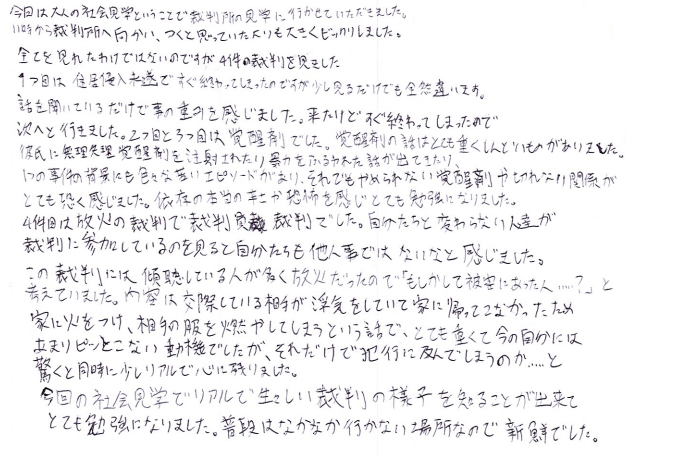 今回は大人の社会見学ということで裁判所の見学に行かせていただきました。
11時から裁判所へ向かい、つくと思っていたよりも大きくビックリしました。
全てを見れたわけではないのですが4件の裁判を見ました
1つ目は住居侵入未遂ですぐ終わってしまったのですが少し見るだけでも全然違います。
話を聞いているだけで事の重みを感じました。来たけどすぐ終わってしまったので
次へと行きました。2つ目と3つ目は覚醒剤でした。覚醒剤の話はとても重くしんどいものがありました。
彼氏に無理矢理覚醒剤を注射されたり暴力をふるわれた話が出てきたり、
1つの事件の背景にも色々な苦いエピソードがあり、それでもやめられない覚醒剤や切れない関係が
とても恐く感じました。依存の本当の辛さ恐怖を感じとても勉強になりました。
4件目は放火の裁判で裁判員裁判でした。自分たちと変わらない人達が
裁判に参加しているのを見ると自分たちも他人事ではないなと感じました。
この裁判には傾聴している人が多く放火だったので「もしかして被害にあった人.....?」と
考えていました。内容は交際している相手が浮気をしていて家に帰ってこなかったため
家に火をつけ、相手の服を燃やしてしまうという話で、とても重くて今の自分には
あまりピンとこない動機でしたが、それだけで犯行に及んでしまうのか.....と
驚くと同時に少しリアルで心に残りました。
今回の社会見学でリアルで生々しい裁判の様子を知ることが出来て
とても勉強になりました。普段はなかなか行かない場所なので新鮮でした。